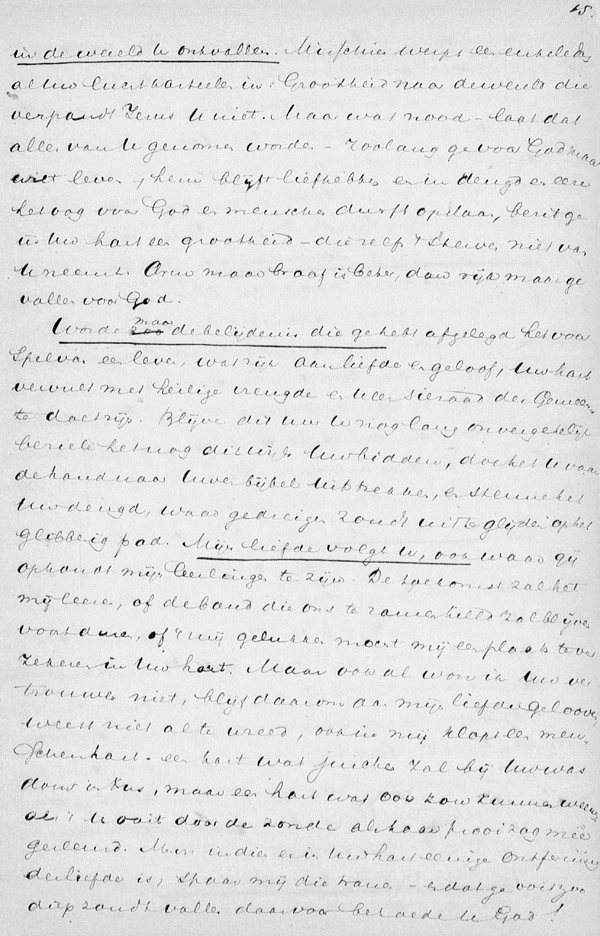 15.
in de wereld te ontvallen. Misschien werpt een enkele dag
al uw luchtkasteelen in: Grootheid naar de wereld die
verpandt Jezus U niet. Maar wat nood – laat dat
alles van U genomen worden – zoolang ge voor God maar
wilt leven, hem blijft liefhebben en in deugd en eere
het oog voor God en menschen durft opslaan, bezit ge
in Uw hart een grootheid – die zelfs 't sterven niet van
U neemt. Arm maar braaf is beter, dan rijk maar ge
vallen voor God.
Worde maar de belijdenis die ge hebt afgelegd het voor
spel van een leven, wat rijk aan liefde en geloof, Uw hart
vervult met heilige vreugde en U een sieraad der Gemeen-
te doet zijn. Blijve dit uur U nog lang onvergetelijk
beziele het nog dikwijls Uw bidden, doe het U vaak
de hand naar Uwen bijbel uitstrekken, en steune het
Uw deugd, waar gedreigen zoudt uit te glijden op het
glibberig pad. Mijn liefde volgt U, ook waar gij
ophoudt mijn leerlingen te zijn. De toekomst zal het
mij leeren, of de band die ons te zamen hield zal blijven
voortduren, of 't mij gelukken mocht mij een plaats te ver
zekeren in Uw hart. Maar ook al won ik Uw ver
trouwen niet, blijf daarom aan mijn liefde gelooven,
weest niet al te wreed, ook in mij klopt een men-
schenhart – een hart wat juichen zal bij Uw was
dom in kus, maar een hart wat ook zou kunnen weenen
als 't U ooit door de zonde als haar prooi zag mee
gesleurd. Maar indien er in Uw hart eenige ontferming
der liefde is, spaar mij die tranen – en dat ge ooit zoo
diep zoudt vallen daarvoor behoede U God!